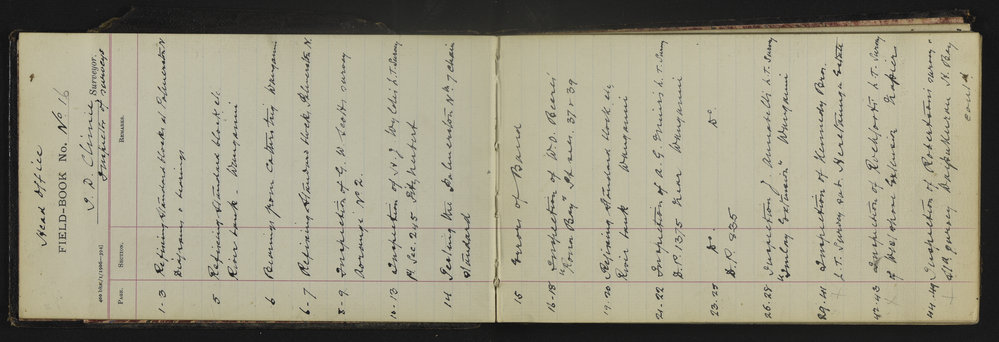 Head Office
FIELD-BOOK No. No 16
J. D. Climie Surveyor.
Inspector of Surveys
400 bks/7/1906—304]
PAGE. SECTION. REMARKS.
1-3 Refixing Standard blocks at Palmerston N
Diagrams & bearings
5 Refixing Standard block etc
River bank - Wanganui
6 Bearings from Wanganui
6-7 Refixing Standard block Palmerston N.
8-9. Inspection of G. W. survey
No 2.
10-13 Inspection of H. J. Wylds L.T. Survey
Pt Sec. 245
14 Testing the Palmerston Nth 7 Chain
Standard
15 Error of Band
16-18 Inspection of W. O.
Bay" Pt secs. 37 & 39
19-20 Refixing Standard block etc
River bank Wanganui
21-22 Inspection of A. G. L. T. Survey
D.P. 1375 Near Wanganui
23-25 Do Do
D.P. 935
26-28 Inspection J. Annabells L.T. Survey
Wanganui
29-41 Inspection of Kennedy Bros.
L T. Survey sub. Heretaunga Estate
42-43 Inspection of Rochforts L T. Survey
of Extension Napier
44-49 Inspection of Robertsons survey
survey Waipukurau H. Bay